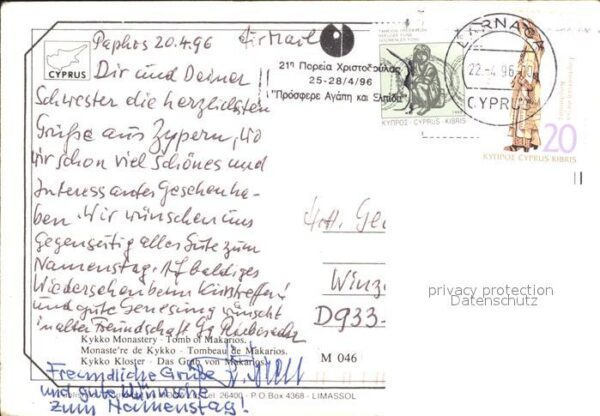 Paphos 20.4.96 Airmail
CYPRUS
Dir und Deiner
Schwester die herzlichsten
Grüße aus Zypern, wo
wir schon viel schönes und
Interessantes Geschenha-
ben. Wir wünschen uns
gegenseitig alles Gute zum
Namenstag. Auf baldiges
Wiedersehen beim
und gute Genesung wünscht
in alter Freundschaft
Kykko Monastery - Tomb of Makarios.
Monaste're de Kykko - Tombeau de Makarios.
Kykko Kloster - Das Grab von Makarios.
Freundliche Grüße
und gute Wünsche
zum Namenstag!
Tel. 26400 - P.O Box 4368 - LIMASSOL
M 046
21η Πορεία Χριστοφούλας
25-28/4/96
"Πρόσφερε Αγάπη και Ελπίδα"
ΚΥΠΡΟΣ · CYPRUS · KIBRIS
LARNACA
22.-4.96
CYPRUS
20
ΚΥΠΡΟΣ CYPRUS KIBRIS
Winz
D933-
privacy protection
Datenschutz